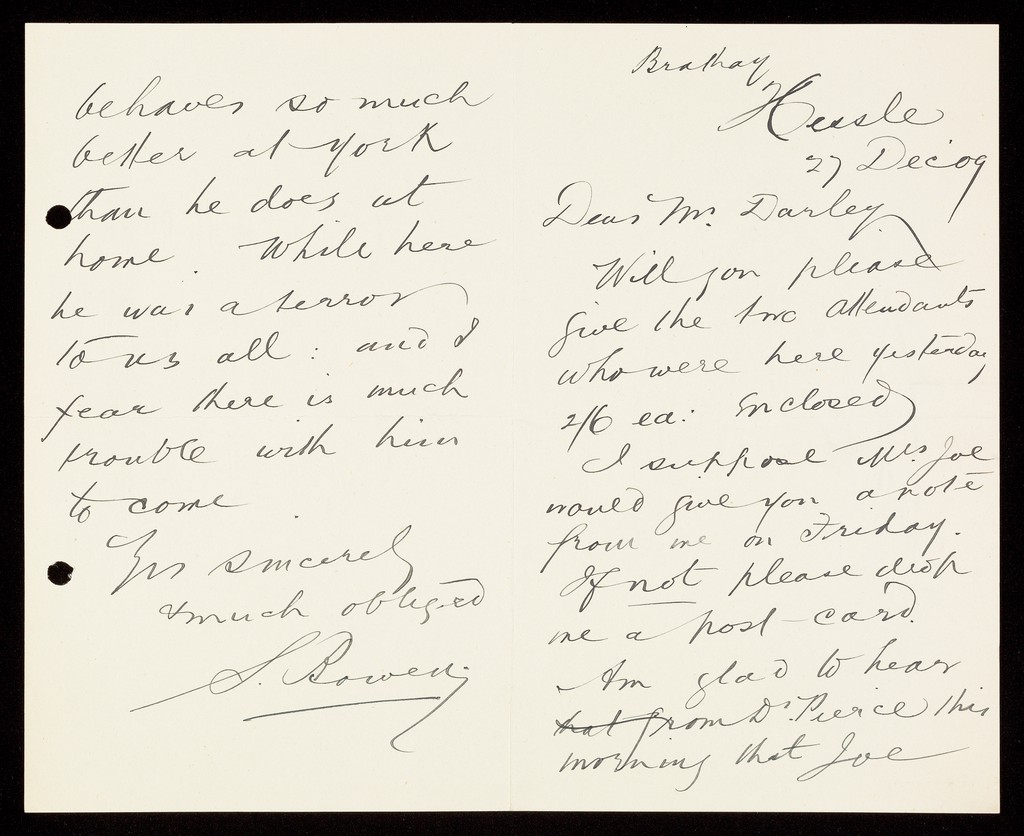 Brathay
Hessle
27 Dec 09
Dear Mr. Darley
Will you please
give the two attendants
who were here yesterday
2/6 ea: enclosed
I suppose Mrs. Joe
would give you a note
from me on Friday.
If not please drop
me a post-card.
Am glad to hear
that from Dr. Pierce this
morning that Joe
behaves so much
better at York
than he does at
home. While here
he was a terror
to us all: and I
fear there is much
trouble with him
to come
Yrs sincerely
& much obliged
S. Bowen